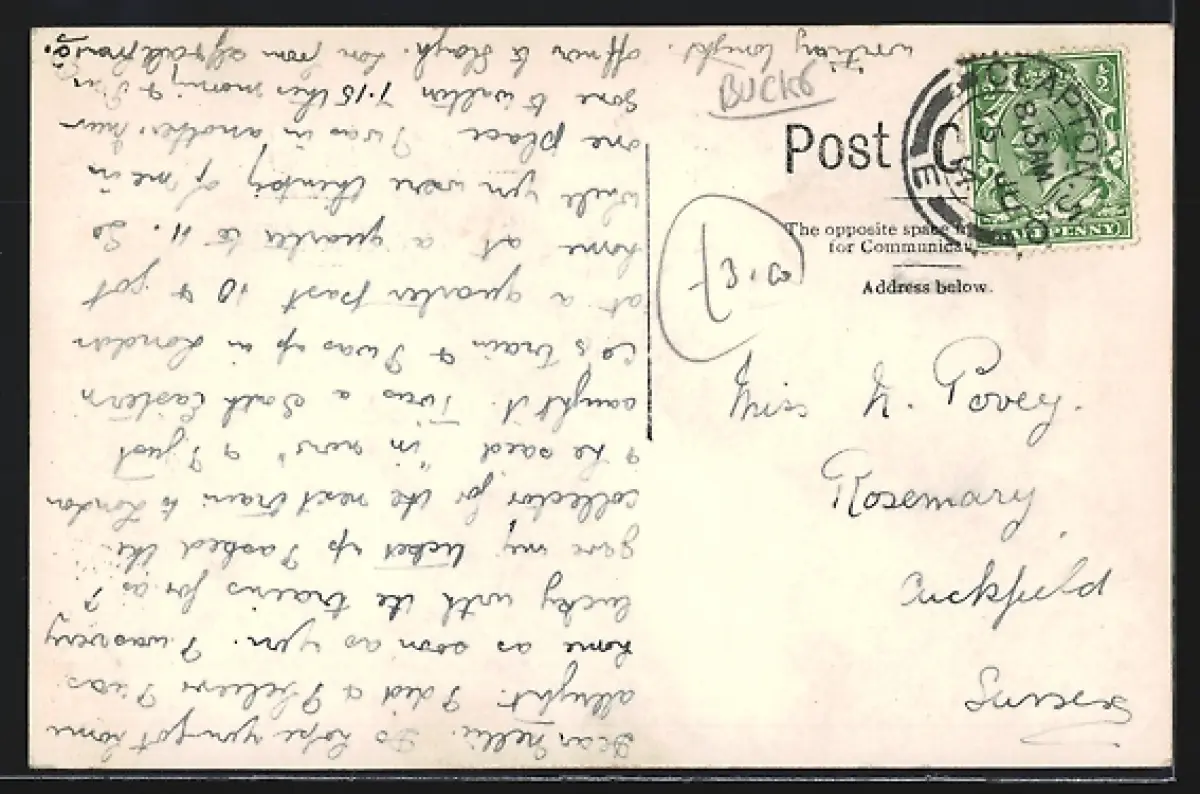 Dear Nellie. Do hope you got home
allright. I did & I believe I was
home as soon as you. I was very
lucky with the trains for as I
gave my ticket up I asked the
collector for the next train to London
& he said "in now" & I just
caught it. Twas a South Eastern
train & I was up in London
at a quarter past 10 & got
home at a quarter to 11. So
while you were thinking of me in
one place I was in another.
Gone to Walton 7.15 this morning &
off now to Slough. from
writing tonight.
BUCKS
Post C
CLAPTON
8.15 AM
E
HALFPENNY
The opposite space
for Communicat
Address below.
£3.00
Miss N. Povey.
Rosemary
Cuckfield
Sussex